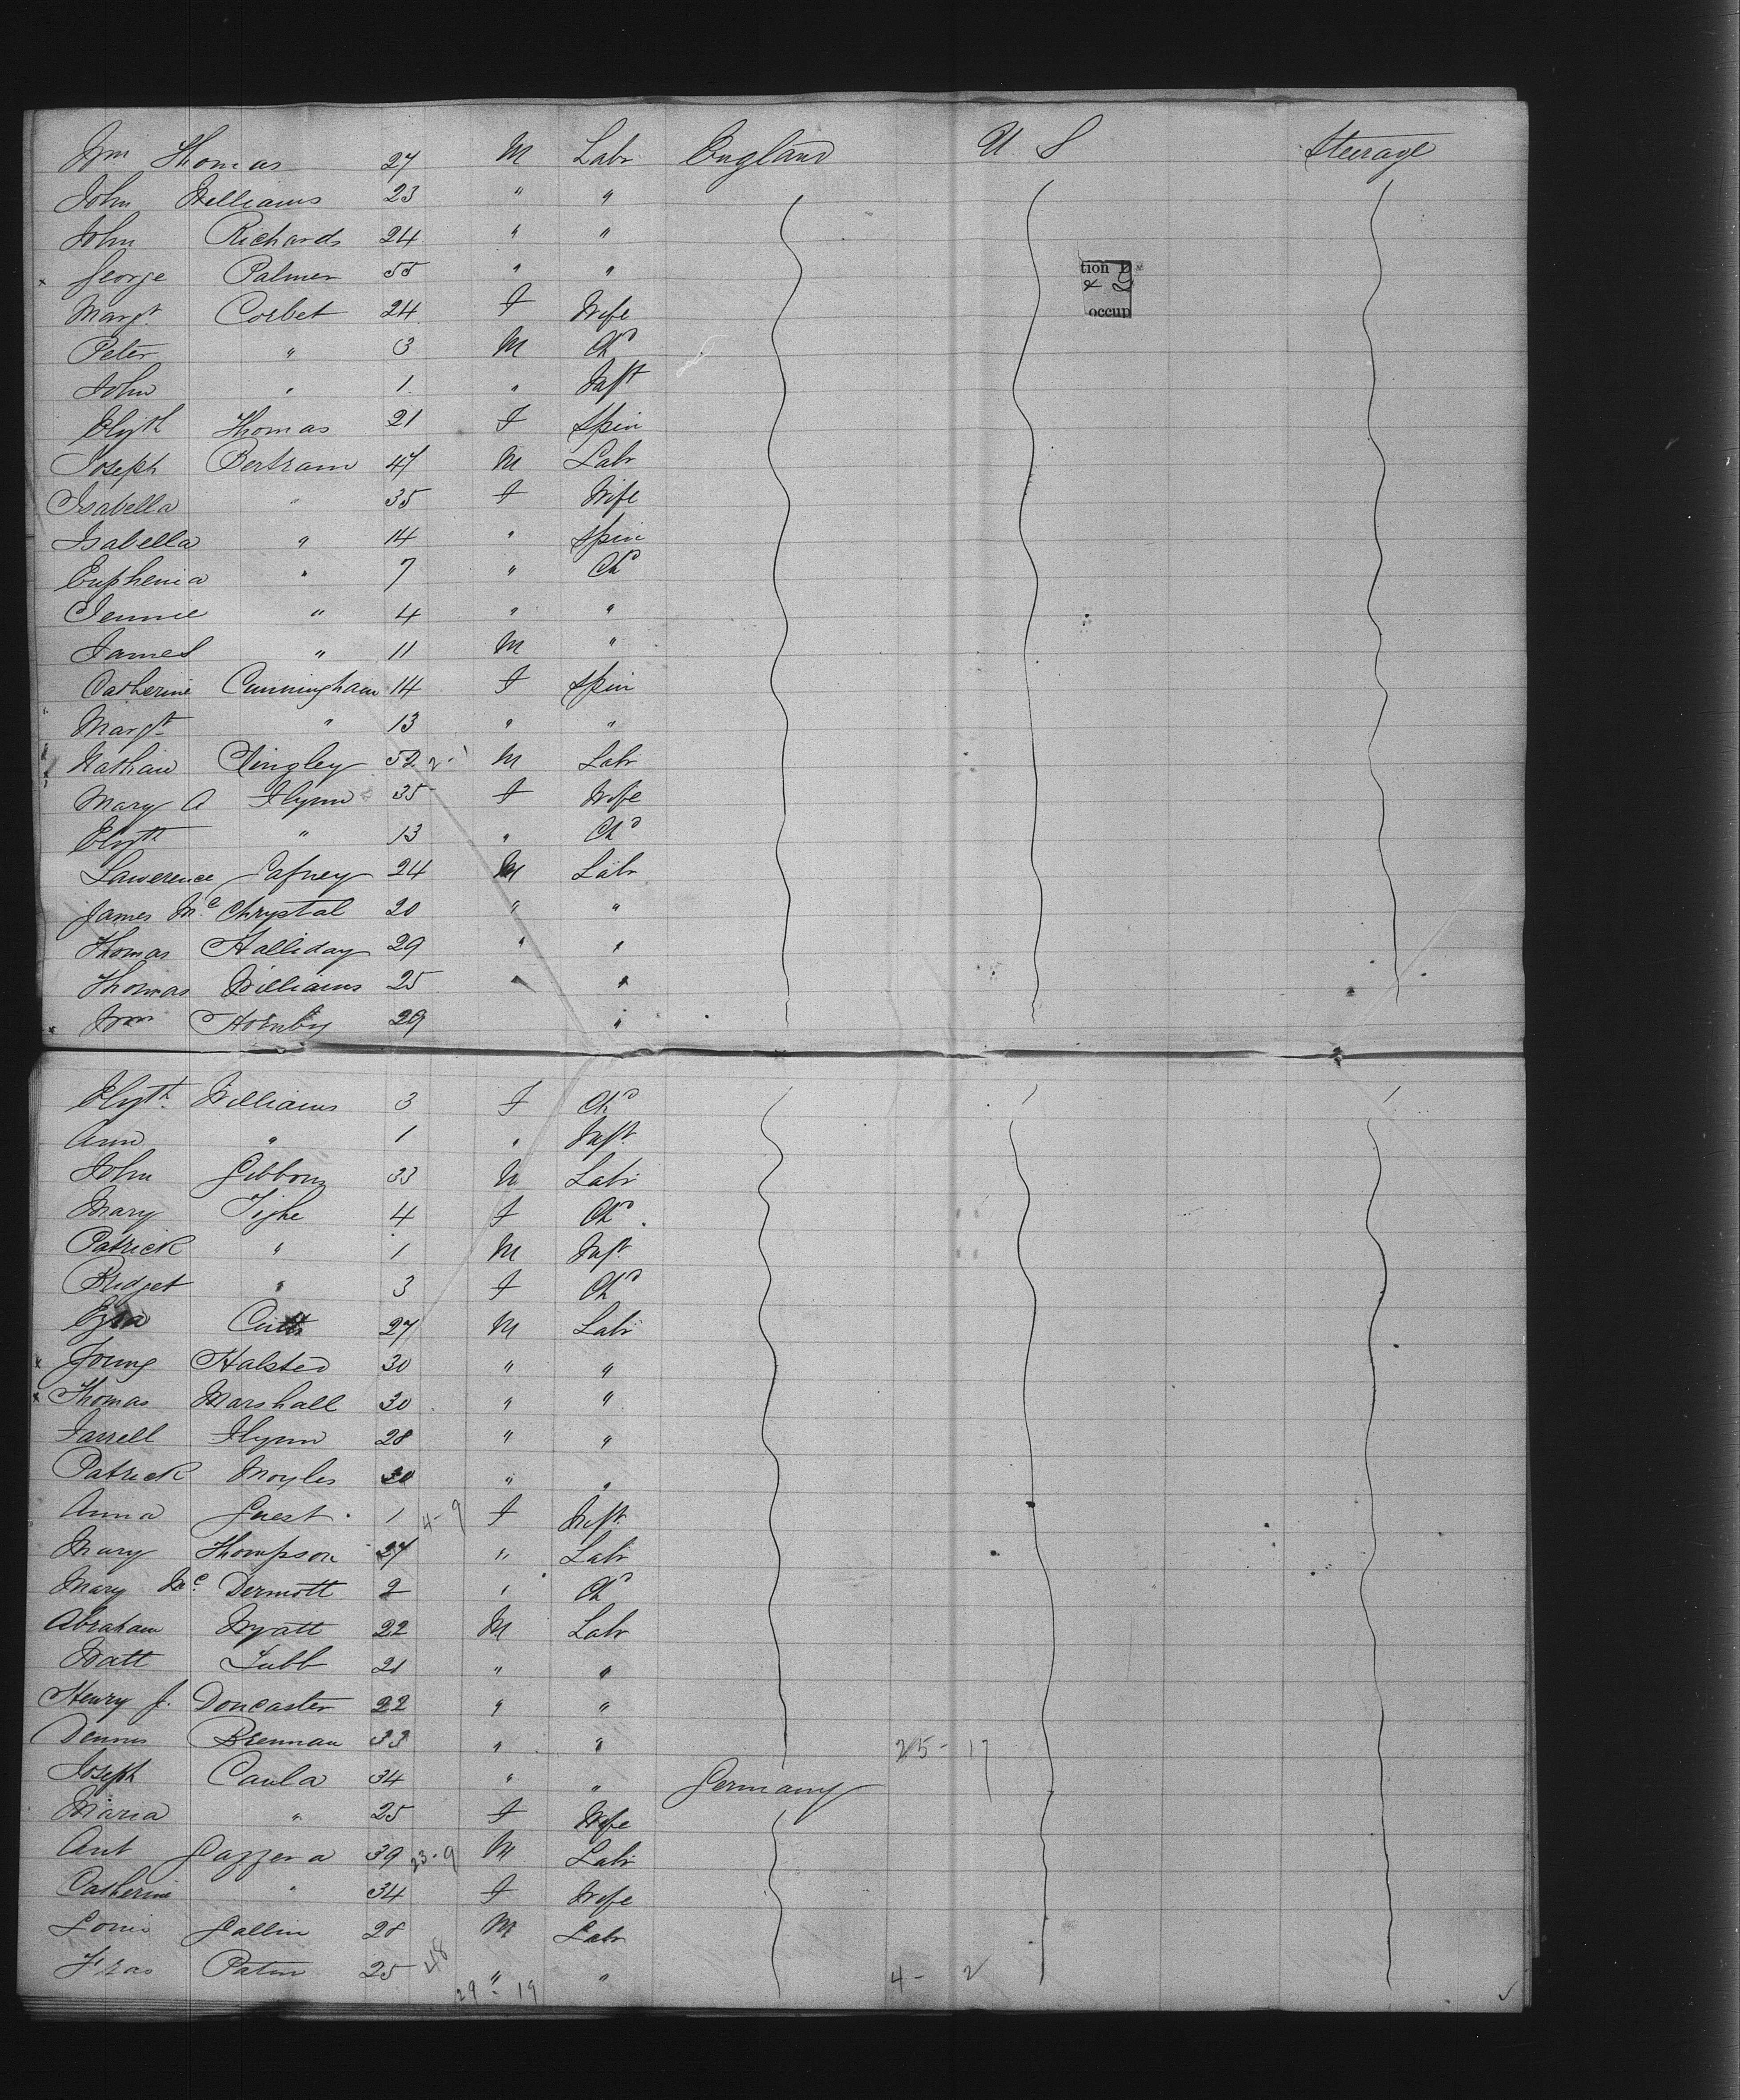 Wm Thomas 27 M Labr England U S Steerage
John Williams 23 " "
John Richards 24 " "
x George Palmer 55 " "
tion D
Margt Corbet 24 F Wife
occup
Peter " 3 M Chd
John " 1 " Inft
Elizth Thomas 21 F Spin
Joseph Bertram 47 M Labr
Isabella " 35 F Wife
Isabella " 14 " Spin
Euphenia " 7 " Chd
Jennie " 4 " "
James " 11 M "
Catherine Cunningham 14 F Spin
Margt " 13 " "
Nathan Clingley 52 M Labr
Mary A Flynn 35 F Wife
Elizth " 13 " Chd
Lawerence Gafney 24 M Labr
James Mc Chrystal 20 " "
Thomas Halliday 29 " "
Thomas Williams 25 " "
x Wm Hornby 29 "
Elizth Williams 3 F Chd
Ann " 1 " Inft
John Gibbons 33 M Labr
Mary Tighe 4 F Chd
Patrick " 1 M Inft
Bridget " 3 F Chd
Ezra 27 M Labr
x Young Halsted 30 " "
x Thomas Marshall 30 " "
Farrell Flynn 28 " "
Patrick Moyles 30 " "
Anna Guest 1 4-9 F Inft
Mary Thompson 27 " Labr
Mary Mc Dermott 2 " Chd
Abraham Wyatt 22 M Labr
Watt Tubb 21 " "
Henry J. Doncaster 22 " "
Dennis Brennan 33 " " 25- 17
Joseph Caula 34 " " Germany
Maria " 25 F Wife
Ant Gazzera 39 23-9 M Labr
Catherine " 34 F Wife
Louis Gallin 28 M Labr
Fras Paten 25 48 " " 4- 2
29-19